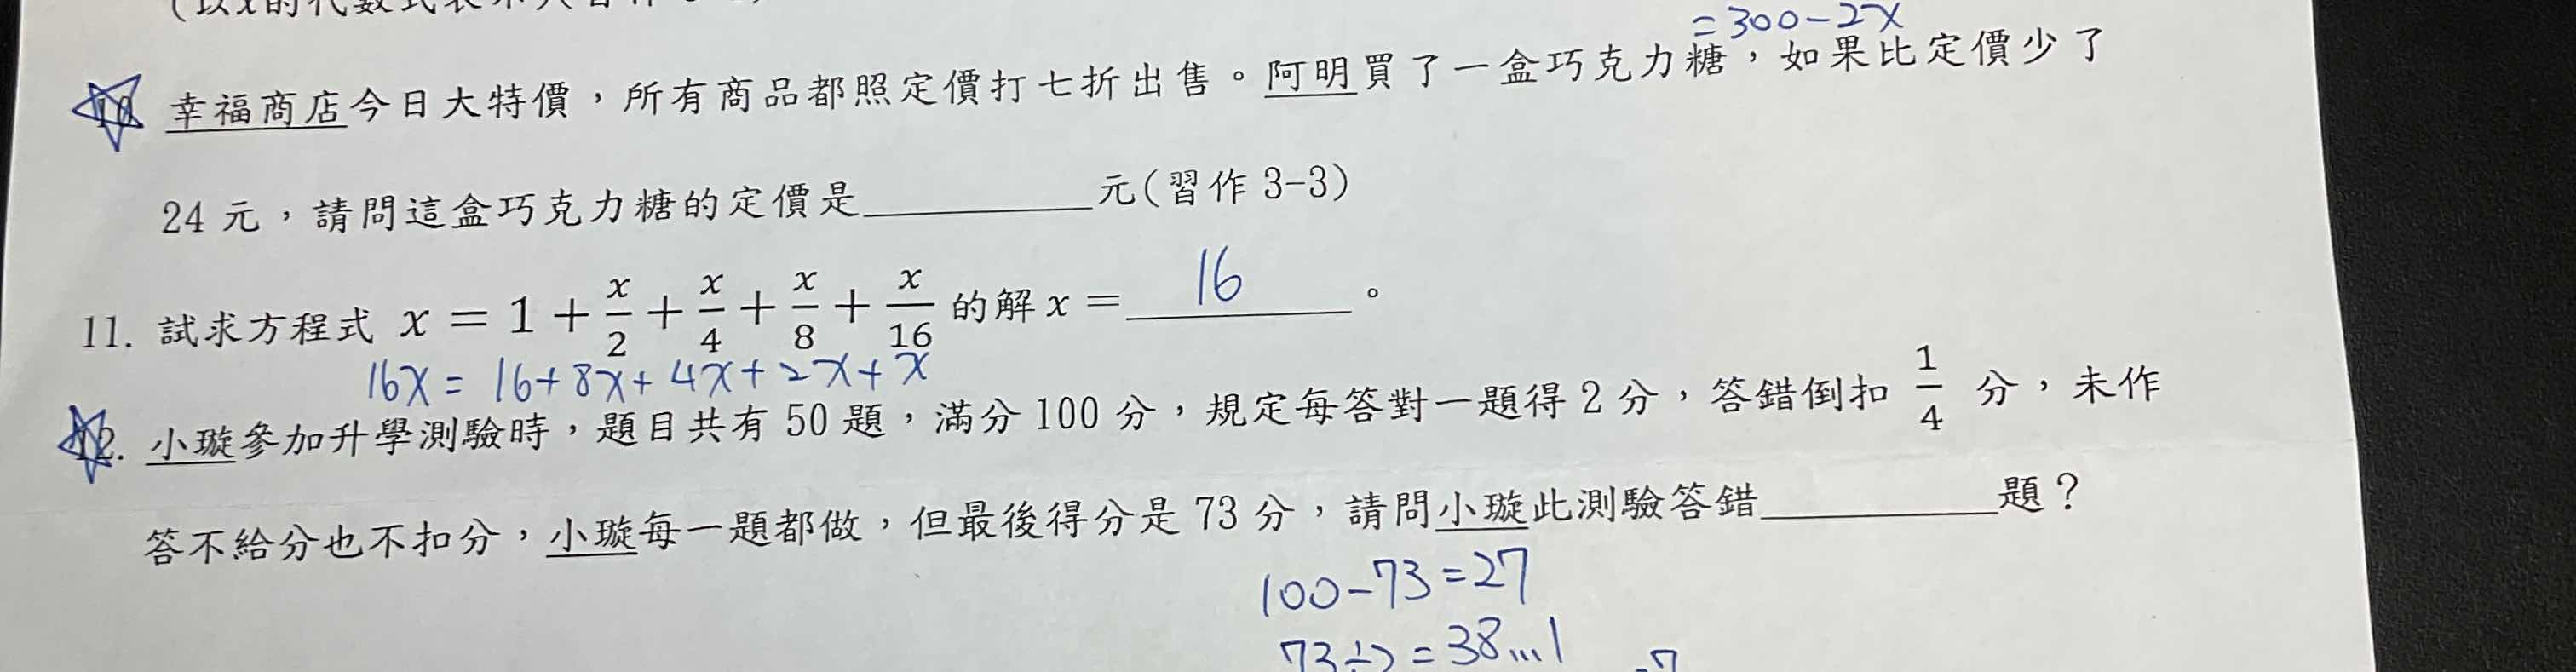 (以x的代數式表示)(習作
=300-2x
10. 幸福商店今日大特價，所有商品都照定價打七折出售。阿明買了一盒巧克力糖，如果比定價少了
24 元，請問這盒巧克力糖的定價是________元(習作 3-3)
11. 試求方程式 x = 1 + x/2 + x/4 + x/8 + x/16 的解 x = 16 。
16x = 16+8x+4x+2x+x
12. 小璇參加升學測驗時，題目共有 50 題，滿分 100 分，規定每答對一題得 2 分，答錯倒扣 1/4 分，未作
答不給分也不扣分，小璇每一題都做，但最後得分是 73 分，請問小璇此測驗答錯________題？
100-73=27
73÷2=38...1